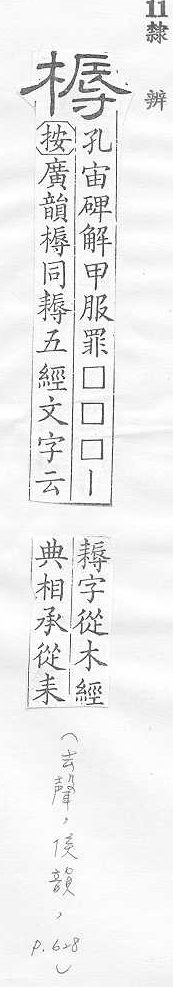 11 隸辨
槈
孔宙碑解甲服罪□□□｜
按廣韻槈同耨五經文字云
耨字從木經
典相承從耒
(去聲，侯韻，p.628)